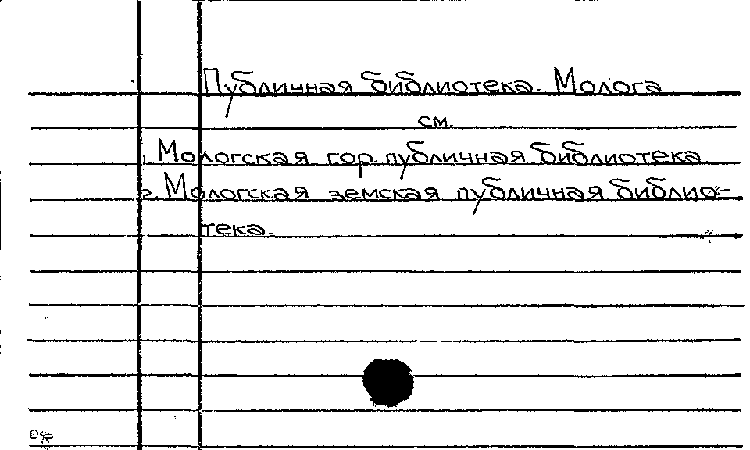 Публичная библиотека. Молога
см.
1. Мологская гор. публичная библиотека
2. Мологская земская публичная библио-
тека.